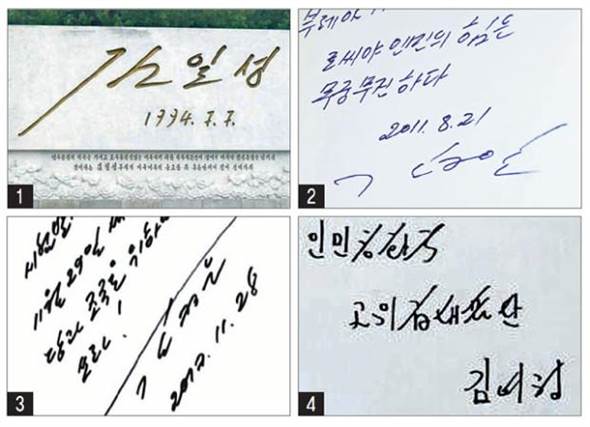 김일성
1994.7.7.
1
부레야
로씨야 인민의 힘은
무궁무진하다
2011.8.21
김정일
2
시험발
11월 29일 새
당과 조국을 위하여
쏘라!
김정은
2017.11.28
3
인민공화국
고위급대표단
김여정
4